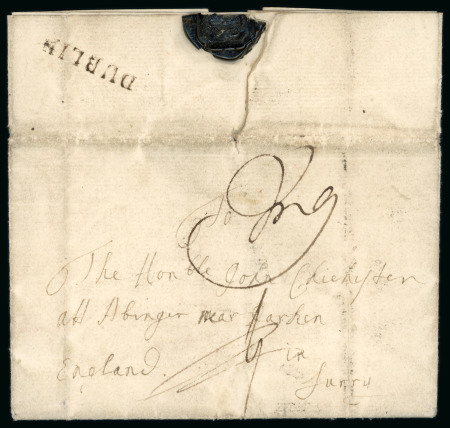 DUBLIN
To
The Honble John Chichester
att Abinger near
England. in
Surry